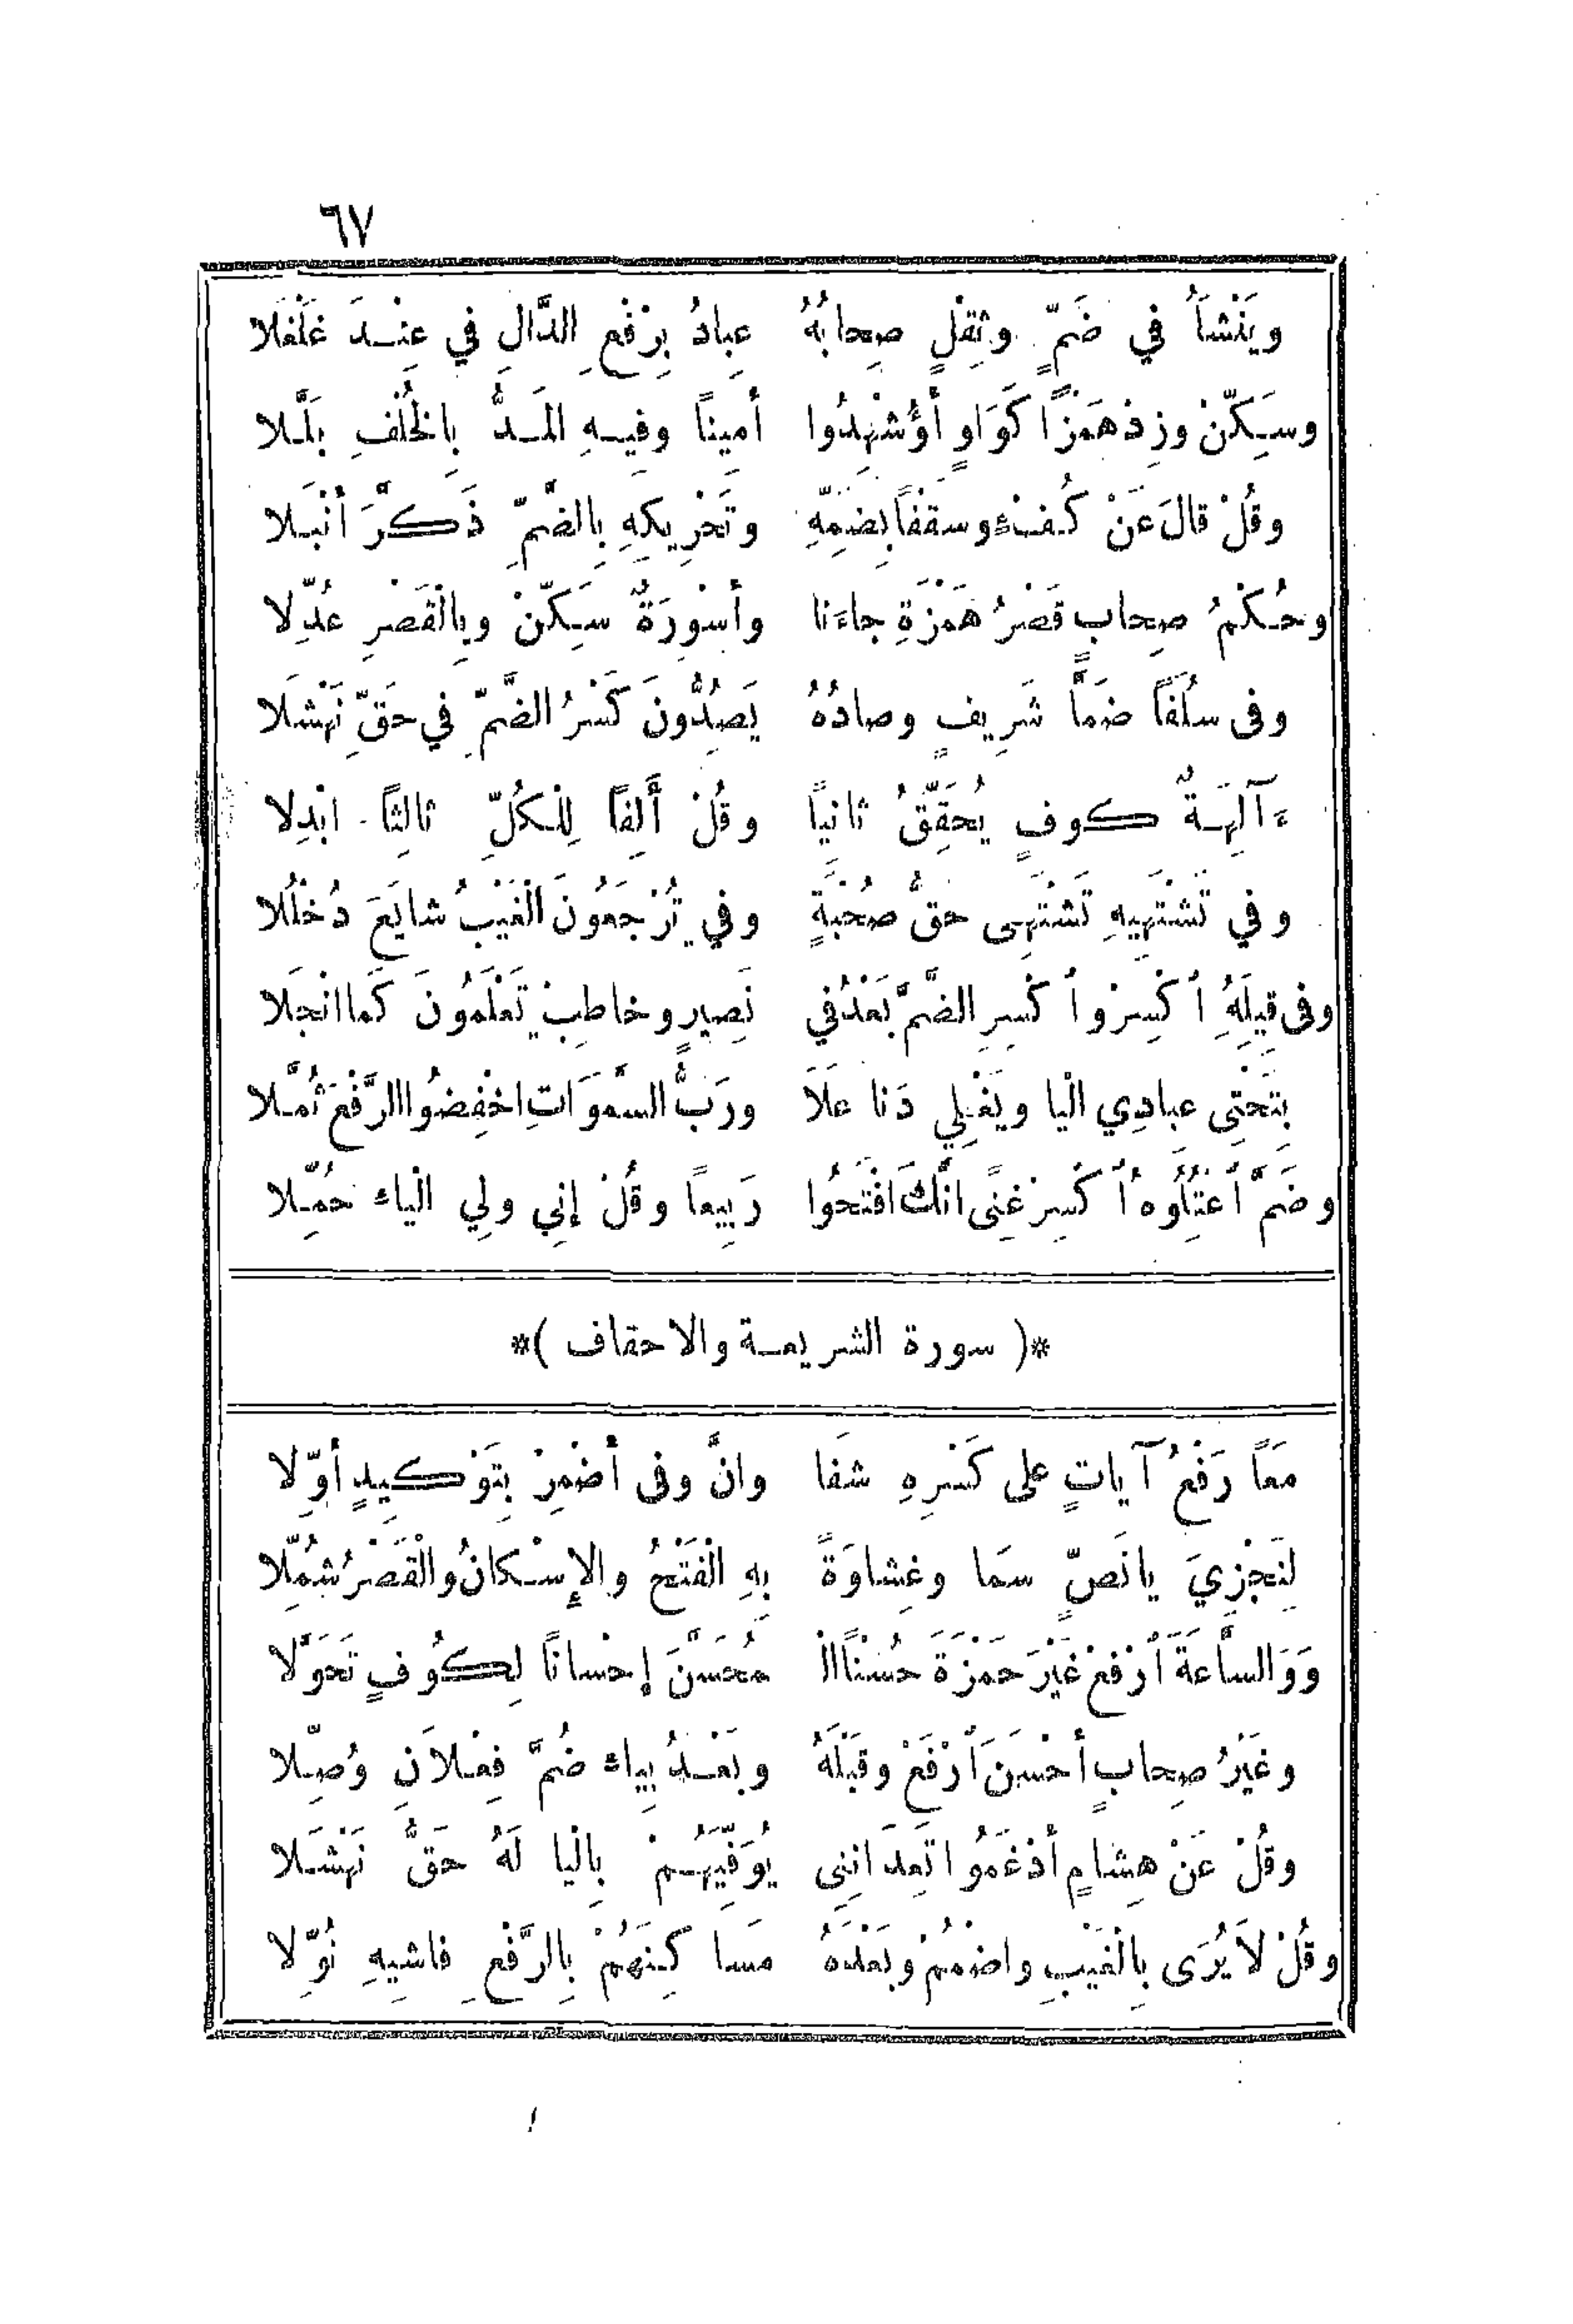 ٦٧
ويَنْشَأُ في ضَمٍّ وثِقْلٍ صِحابُهُ عِبادُ بِرَفْعِ الدَّالِ في عِنْدَ غَلْغَلا
وسَكِّنْ وزِدْ هَمْزًا كَوَاوٍ أَؤُشْهِدُوا أمِيناً وفِيهِ المَدُّ بِالخُلْفِ بَلَّلا
وقُلْ قالَ عَنْ كُفْءٍ وسَقْفاً بِضَمِّهِ وتَحْرِيكِهِ بِالضَّمِّ ذَكَّرَ أنْبَلا
وحُكْمُ صِحابٍ قَصْرُ هَمْزَةِ جاءَنا وأَسْوِرَةٌ سَكِّنْ وبِالْقَصْرِ عُدِّلا
وفى سلُفَاً ضَمَّا شَرِيفٍ وصادُهُ يَصِدُّونَ كَسْرُ الضَّمِّ في حَقِّ نَهْشَلا
ءَآلِهَةٌ كوفٍ يُحَقِّقُ ثانياً وقُلْ أَلِفاً لِلْكُلِّ ثالِثاً ابْدِلا
وفي تَشْتَهِيهِ تَشْتَهِى حقُّ صُحْبَةٍ وفي تُرْجَعُونَ الْغَيْبُ شايَعَ دُخْلُلا
وفى قِيلَهُ ٱكْسِرْ وٱكْسِرِ الضَّمَّ بَعْدُ في نَصِيرٍ وخاطِبْ تَعْلَمُونَ كَما انْجَلا
بِتَحْتِى عبادِي الْيا ويَغْلِي دَنا عَلاَ ورَبُّ السَّموَاتِ اخْفِضُوا الرَّفْعَ ثُمَّلا
وضَمَّ ٱعْتِلُوهُ ٱكْسِرْ غِنًى انَّكَ افْتَحُوا رَبِيعاً وقُلْ إنِي ولِي الْياء حُمِّلا
*( سورة الشريعة والاحقاف )*
مَعاً رَفْعُ آياتٍ على كَسْرِهِ شَفا وانَّ وفى أَضْمِرْ بِتَوْكيدٍ أوِّلا
لِنَجْزِيَ يا نَصٍّ سَما وغِشاوَةً بِهِ الْفَتْحُ والإِسْكانُ والْقَصْرُ شُمِّلا
وَوَالسَّاعَةَ ٱرْفَعْ غَيْرَ حَمْزَةَ حُسْنًا الْ مُحَسَّنَ إحْسانًا لِكُوفٍ تَحَوَّلا
وغَيْرُ صِحابٍ أحْسَنَ ٱرْفَعْ وقَبْلَهُ وبَعْدُ بِياء ضُمَّ فِعْلاَنِ وُصِّلا
وقُلْ عَنْ هِشامٍ أدْغَمُوا تَعِدَانِنِى يُوَفِّيَهُمْ بِالْيا لَهُ حَقُّ نَهْشَلا
وقُلْ لاَ يُرَى بِالْغَيْبِ واضْمُمْ وبَعْدَهُ مَسا كِنَهُمْ بِالرَّفْعِ فاشِيهِ نُوِّلا